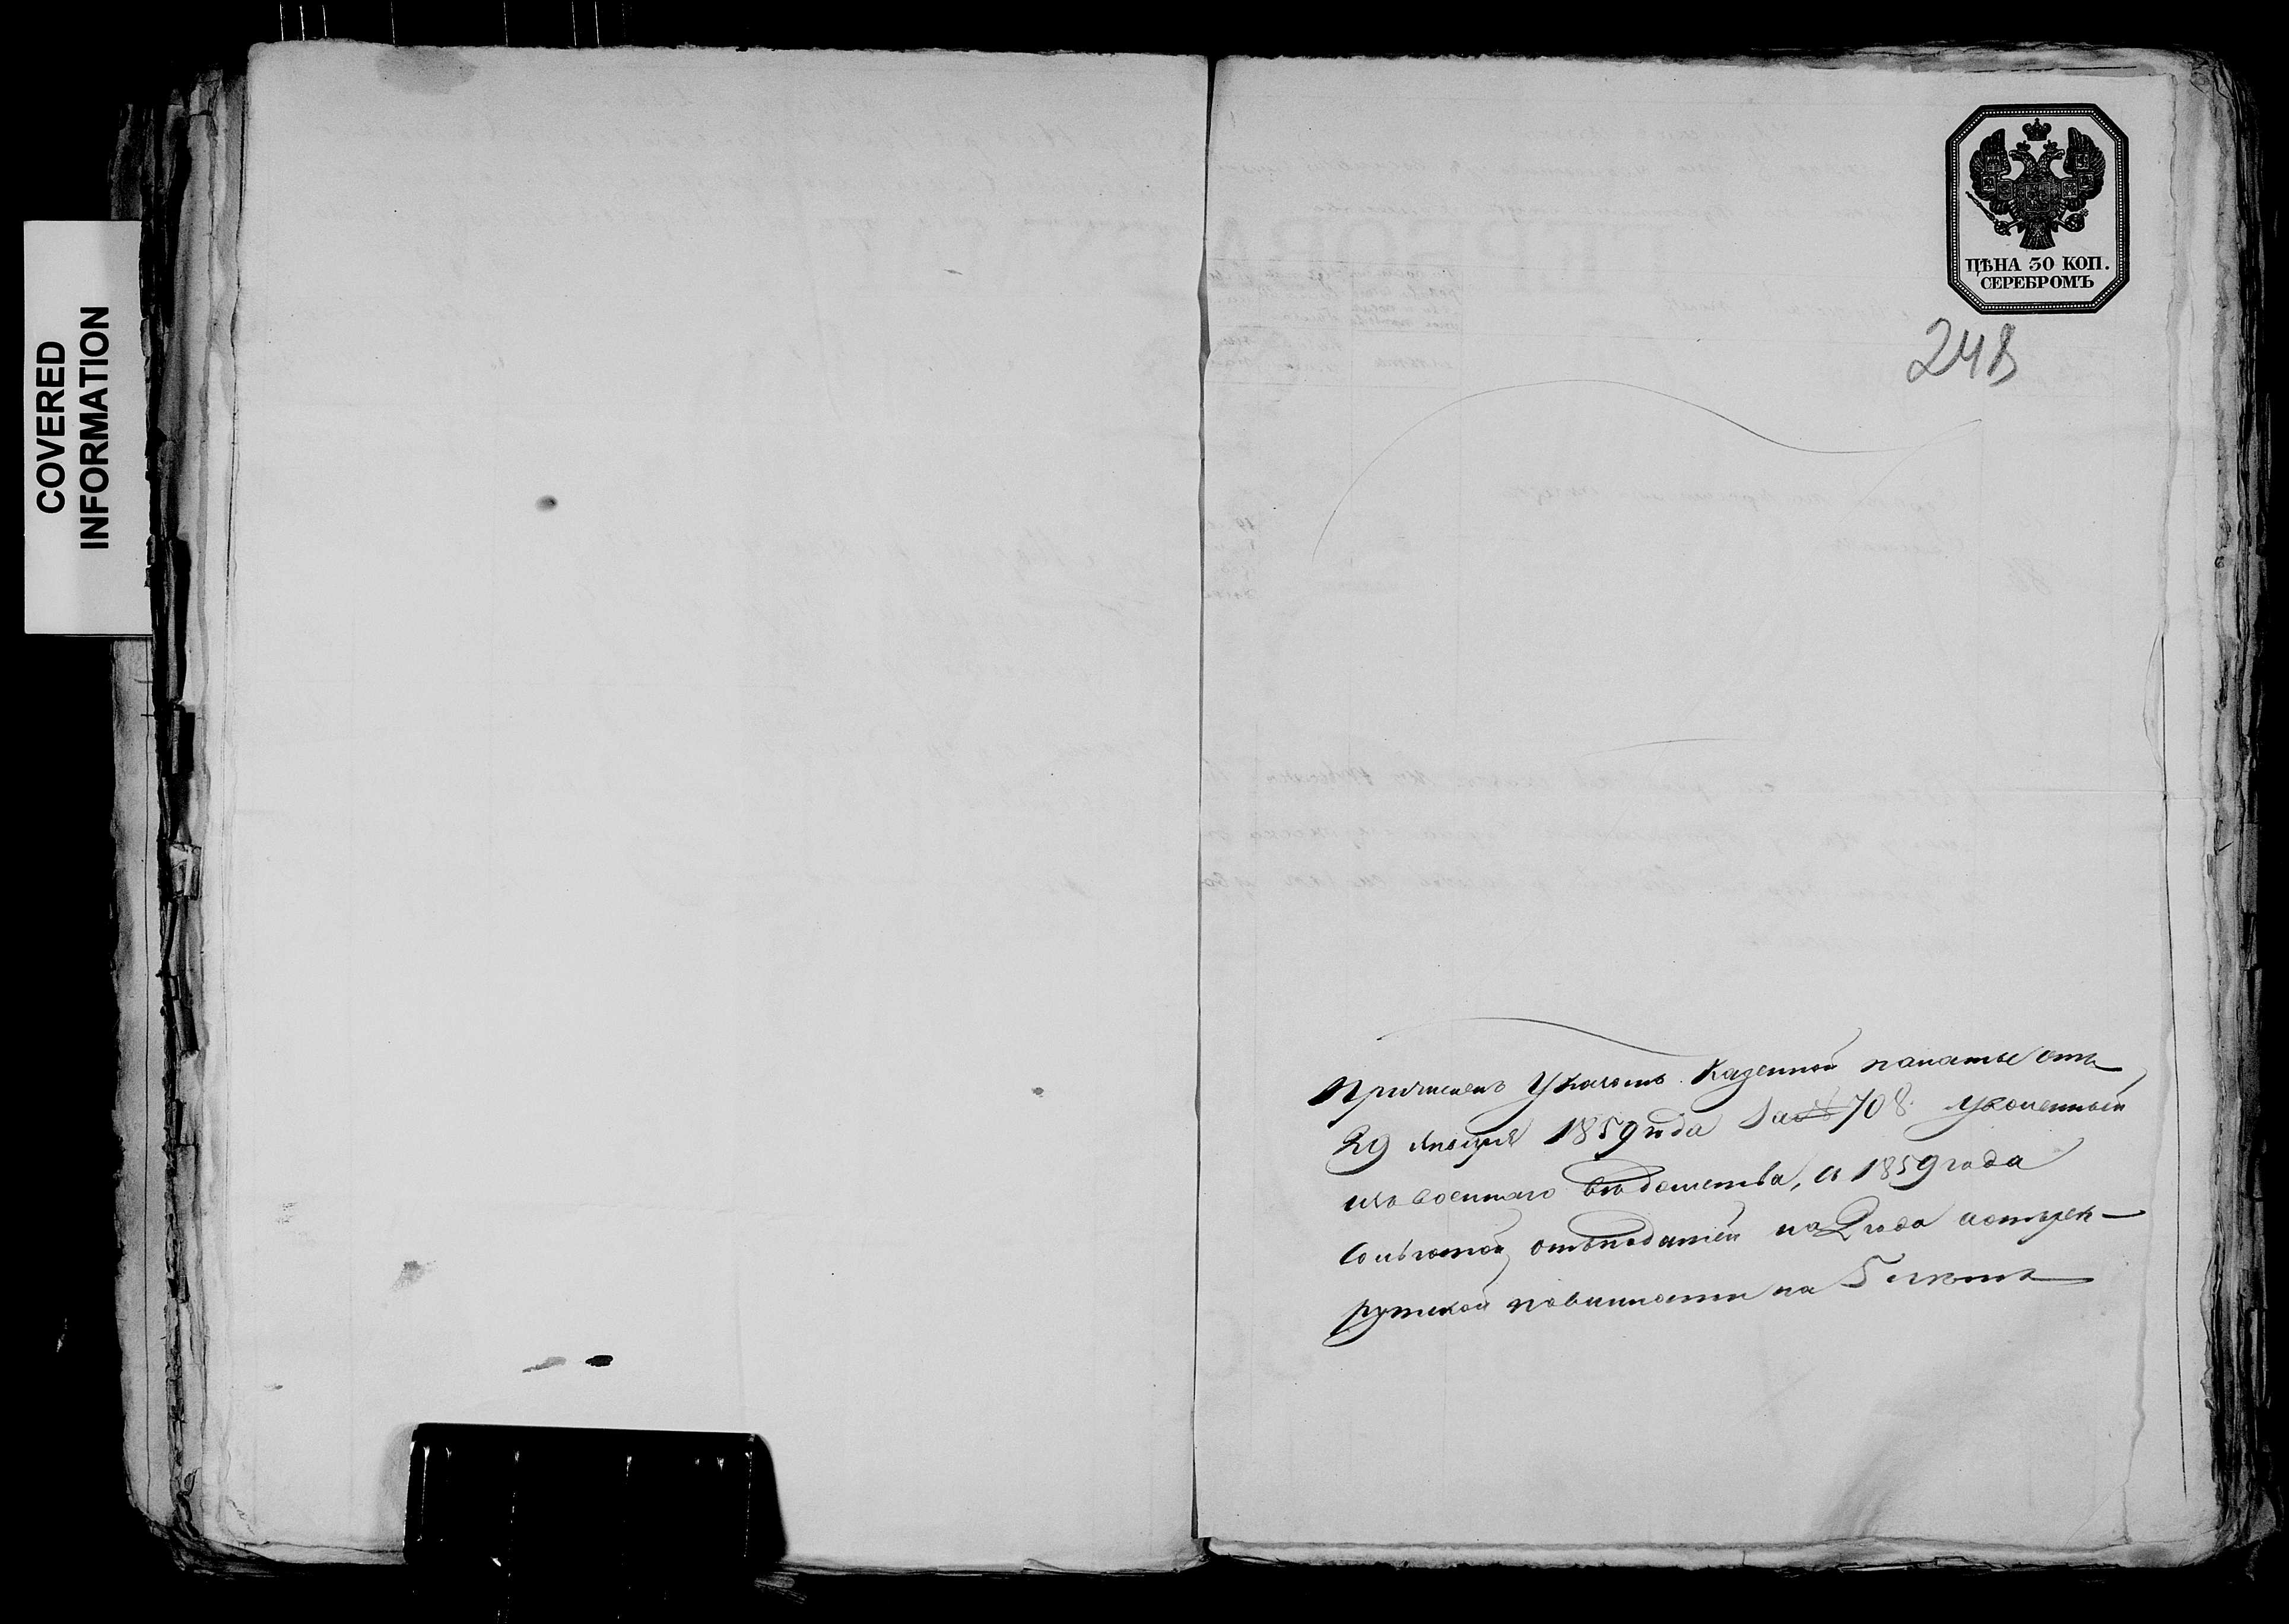 COVERED
INFORMATION
ЦѢНА 30 КОП.
СЕРЕБРОМЪ
248
Причисленъ Указомъ Казенной палаты отъ
29 Января 1859 года за № 708 уволенный
изъ военнаго вѣдомства, съ 1859 года
Сольготой отъ податей на 2 года а отъ рек-
рутской повинности на 5 лѣтъ